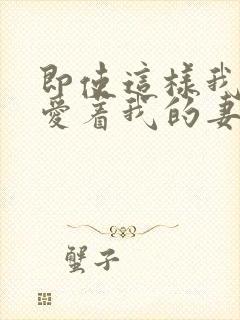 即使這樣我
愛着我的妻
蟹子